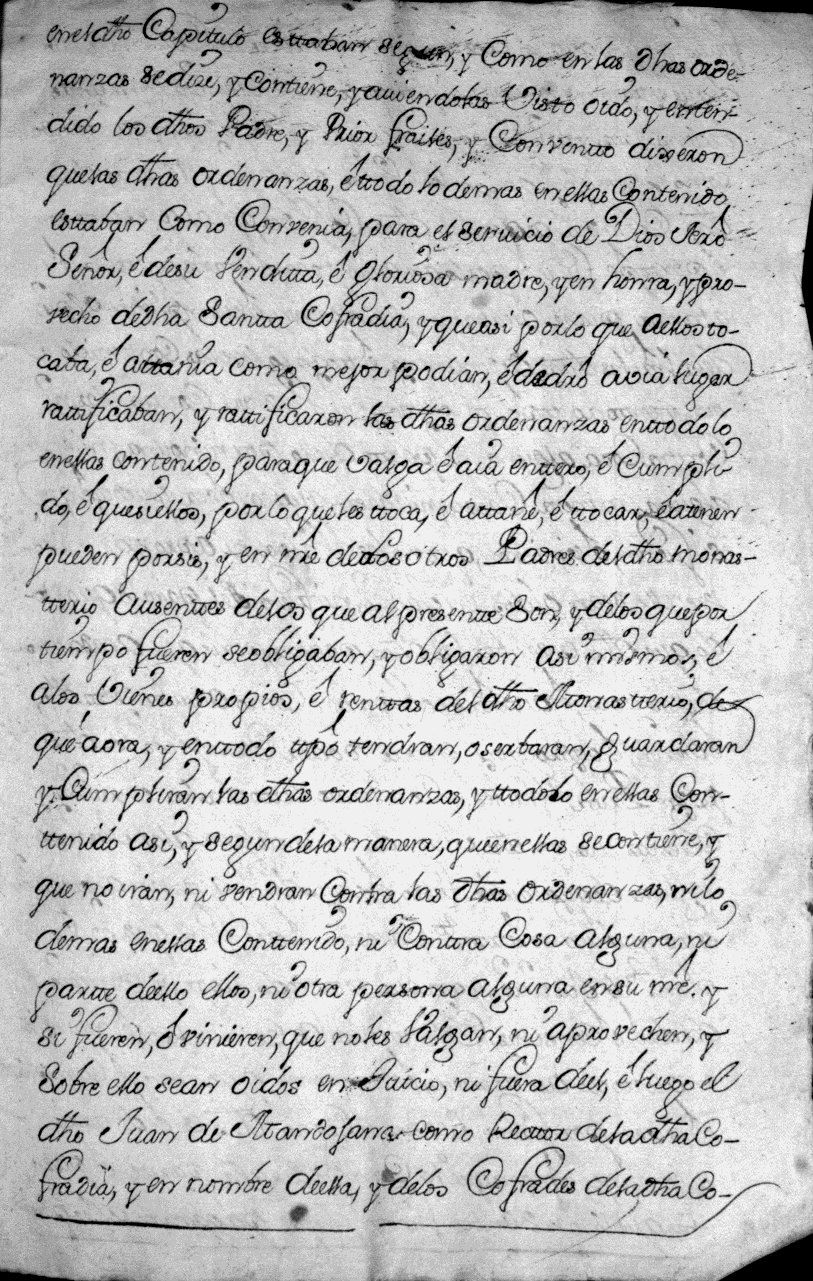 enel dho Capitulo esttaban segun, y Como en las dhas orde-
nanzas sedize, y Contiene, y auiendolas Visto oido, y enten-
dido los dhos Padre, y Prior frailes, y Conventto dixeron
quelas dhas ordenanzas, é ttodo lo demas en ellas Contenido
esttaban Como Convenia, para el seruicio de Dios Nrõ
Señor, é desu Vendita, é gloriosa madre, y en honra, y pro-
vecho dedha Santta Cofradia, y que asi por lo que aellos to-
caba, é attania como mejor podian, é dedrõ avia lugar
rattificaban, y rattificaron las dhas ordenanzas enttodo lo
enellas contenido, paraque Valga é aia enttero, é Cumpli-
do, é quesiellos, por lo que les ttoca, é attañe, é ttocar, é atener
pueden porsi, y en nrẽ delos otros Padres del dho monas-
tterio ausenttes delos que al presentte Son, y delos que por
tiempo fueren seobligaban, y obligaron asi mismos, é
alos Vienes propios, é renttas del dho Monastterio, de
que áora, y enttodo ttpõ tendran, oserbaran, Guardaran
y Cumpliran las dhas ordenanzas, y ttodolo enellas Con-
ttenido asi, y segun dela manera, que enellas secontiene, y
que no iran, ni vendran Contra las dhas Ordenanzas, nilo
demas enellas Conttenido, ni Conttra Cosa alguna, ni
partte deello ellos, ni otra persona alguna en su nrẽ. y
si fueren, ó vinieren, que noles Valgan, ni aprovechen, y
Sobre ello sean oidos en Juicio, ni fuera del, é luego el
dho Juan de Mandojana como Rector dela dha Co-
fradia, y en nombre deella, y delos Cofrades dela dha Co-